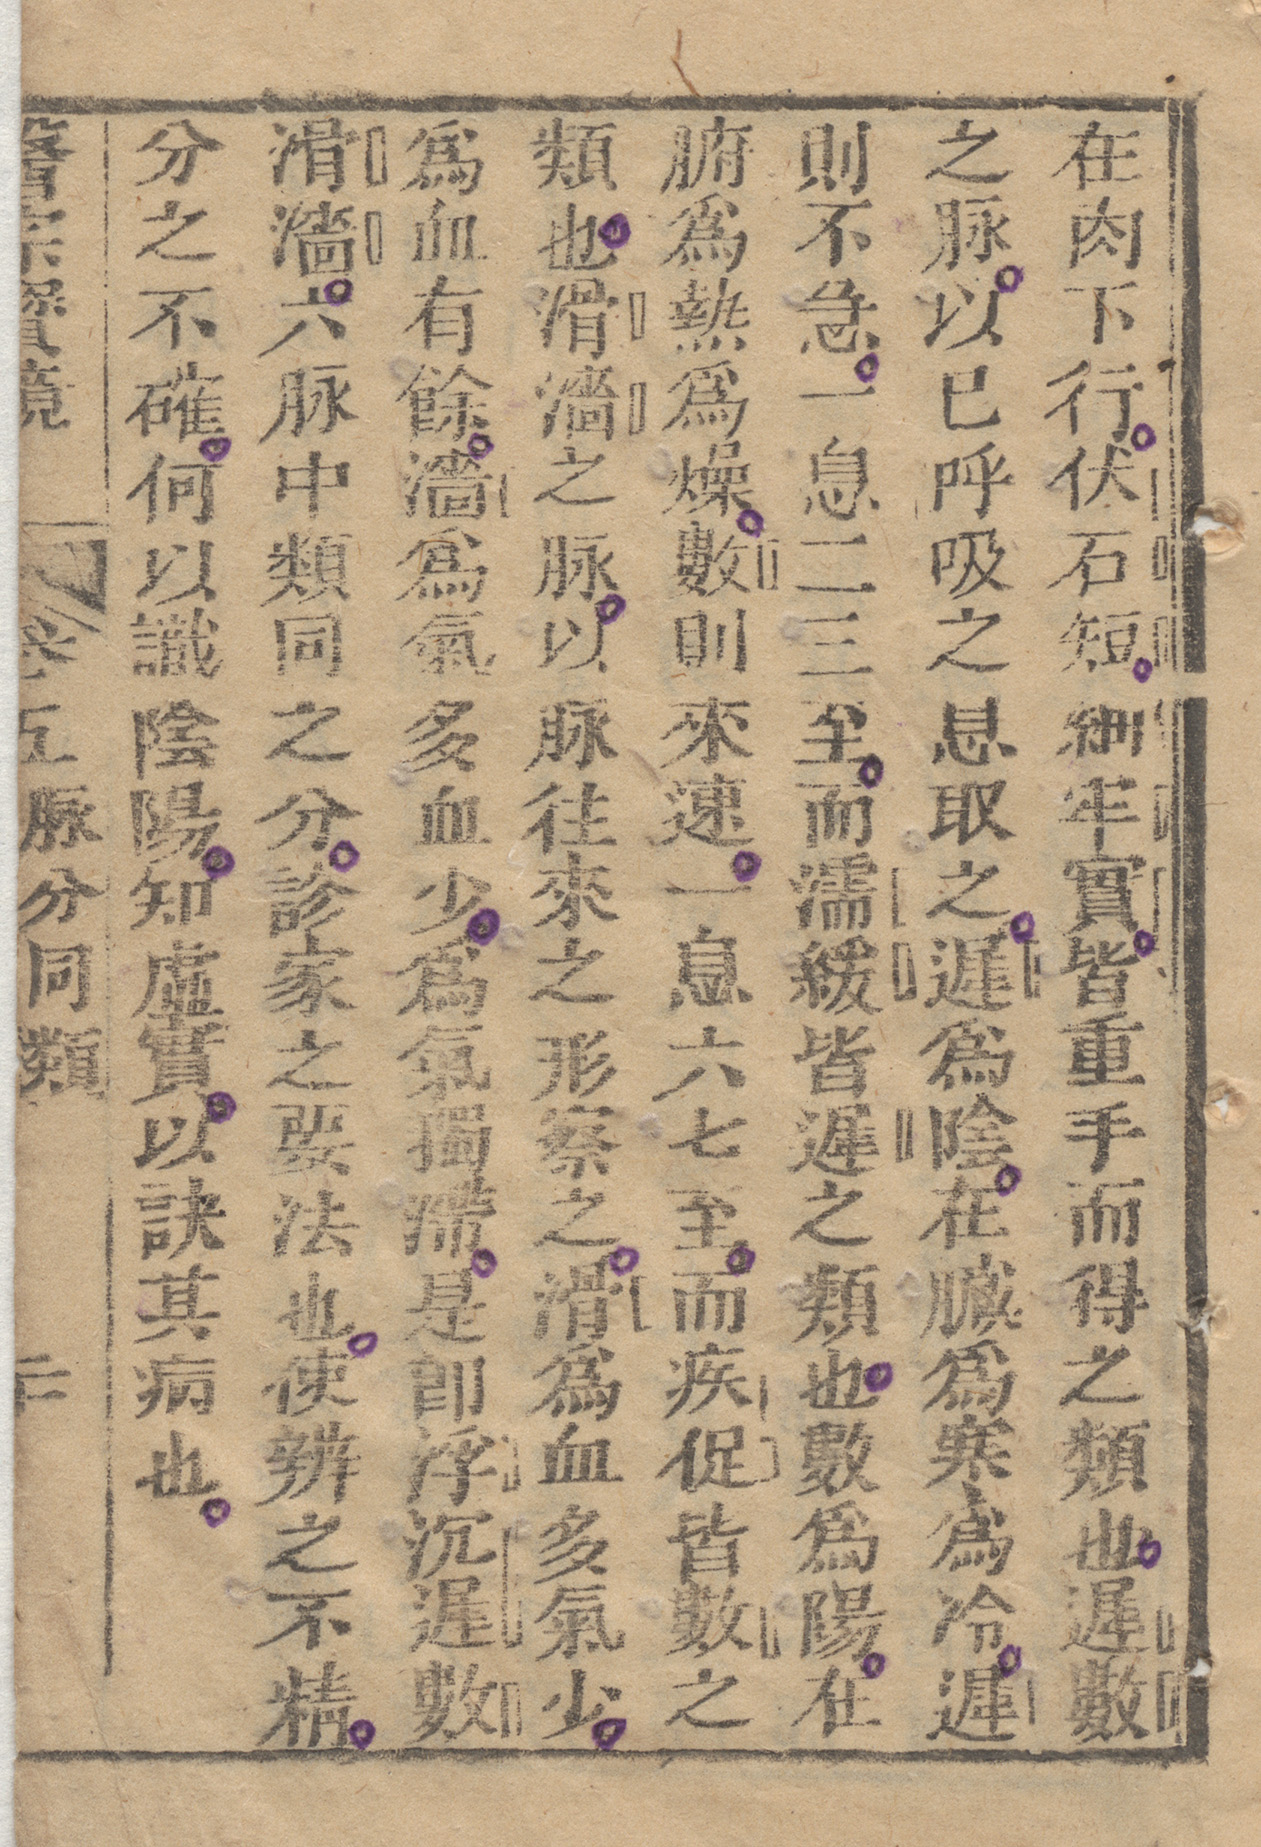 在肉下行伏石短細牢實皆重手而得之類也遲數
之脉以已呼吸之息取之遲爲陰在臟爲寒爲冷遲
則不急一息二三至而濡緩皆遲之類也數爲陽在
腑爲熱爲燥數則來速一息六七至而疾促皆數之
類也滑濇之脉以脉往來之形察之滑爲血多氣少
爲血有餘濇爲氣多血少爲氣獨滯是卽浮沉遲數
滑濇六脉中類同之分診家之要法也使辨之不精
分之不確何以識陰陽知虛實以訣其病也
醫宗寶鏡 卷五脉分同類 二